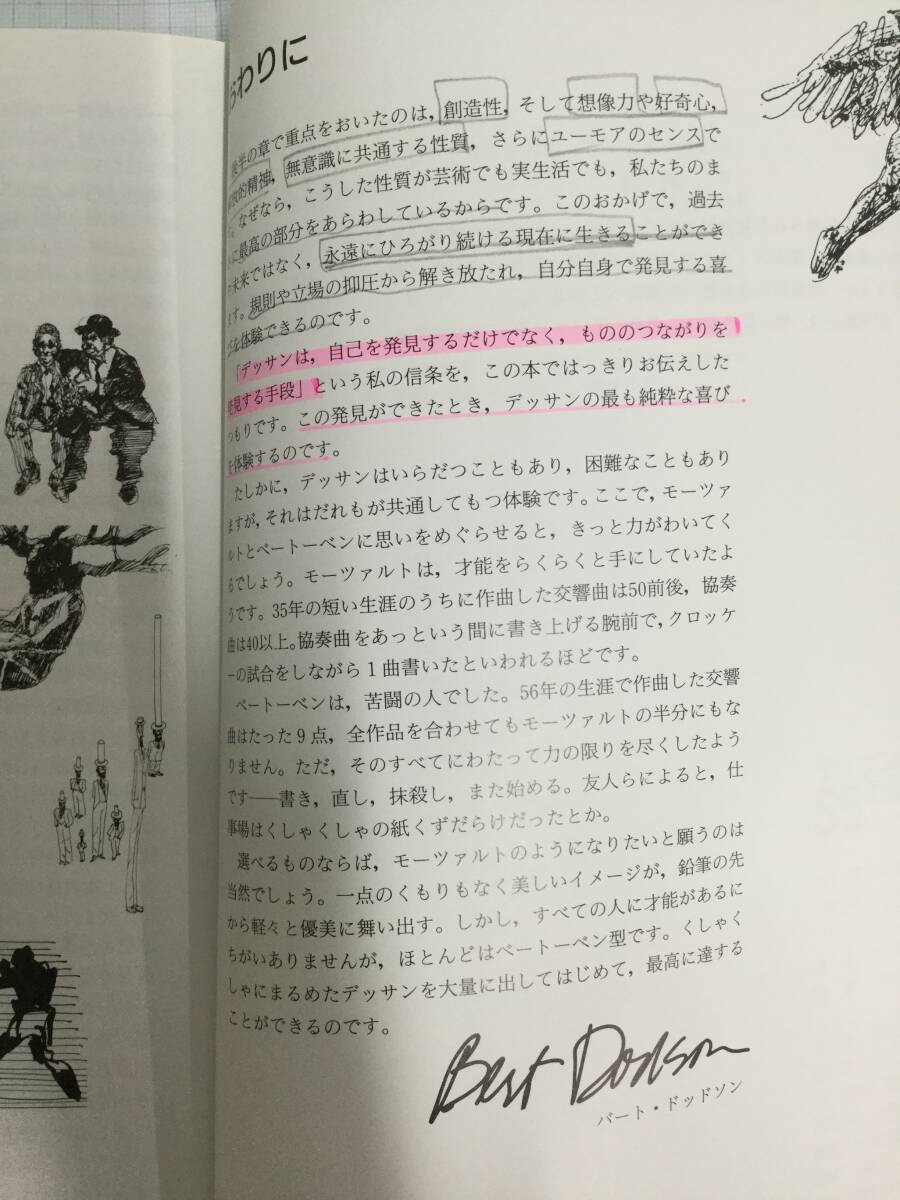 おわりに
後半の章で重点をおいたのは，創造性，そして想像力や好奇心，
的精神，無意識に共通する性質，さらにユーモアのセンスで
なぜなら，こうした性質が芸術でも実生活でも，私たちのま
に最高の部分をあらわしているからです。このおかげで，過去
未来ではなく，永遠にひろがり続ける現在に生きることができ
ます。規則や立場の抑圧から解き放たれ，自分自身で発見する喜
を体験できるのです。
「デッサンは，自己を発見するだけでなく，もののつながりを
発見する手段」という私の信条を，この本ではっきりお伝えした
つもりです。この発見ができたとき，デッサンの最も純粋な喜び
を体験するのです。
たしかに，デッサンはいらだつこともあり，困難なこともあり
ますが，それはだれもが共通してもつ体験です。ここで，モーツァ
ルトとベートーベンに思いをめぐらせると，きっと力がわいてく
るでしょう。モーツァルトは，才能をらくらくと手にしていたよ
うです。35年の短い生涯のうちに作曲した交響曲は50前後，協奏
曲は40以上。協奏曲をあっという間に書き上げる腕前で，クロッケ
ーの試合をしながら1曲書いたといわれるほどです。
ベートーベンは，苦闘の人でした。56年の生涯で作曲した交響
曲はたった9点，全作品を合わせてもモーツァルトの半分にもな
りません。ただ，そのすべてにわたって力の限りを尽くしたよう
です──書き，直し，抹殺し，また始める。友人らによると，仕
事場はくしゃくしゃの紙くずだらけだったとか。
選べるものならば，モーツァルトのようになりたいと願うのは
当然でしょう。一点のくもりもなく美しいイメージが，鉛筆の先
から軽々と優美に舞い出す。しかし，すべての人に才能があるに
ちがいありませんが，ほとんどはベートーベン型です。くしゃく
しゃにまるめたデッサンを大量に出してはじめて，最高に達する
ことができるのです。
Bert Dodson
バート・ドッドソン